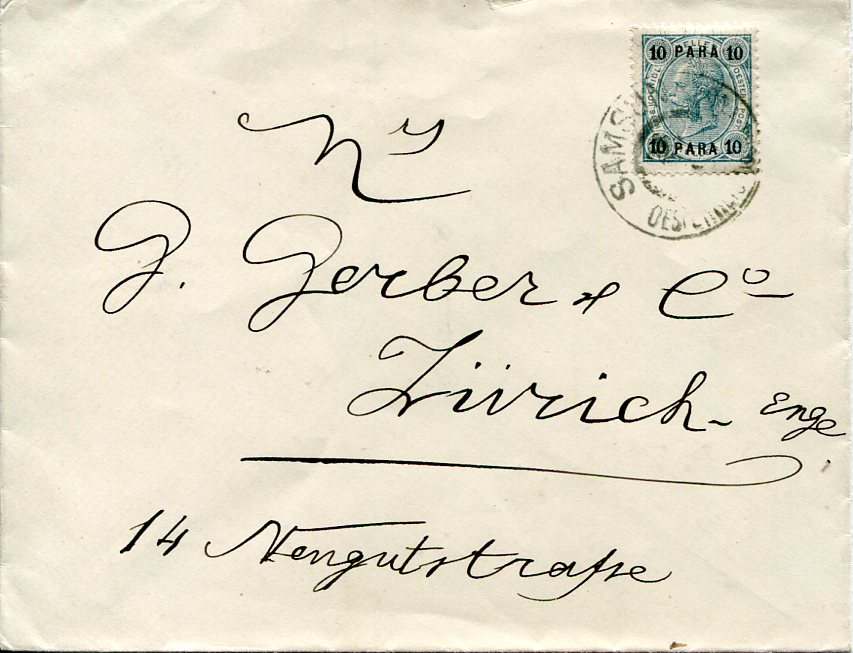 10 PARA 10
10 PARA 10
SAMSU
OESTERREIC
G. Gerber & Co
Zürich- Enge
14 Neugutstraße